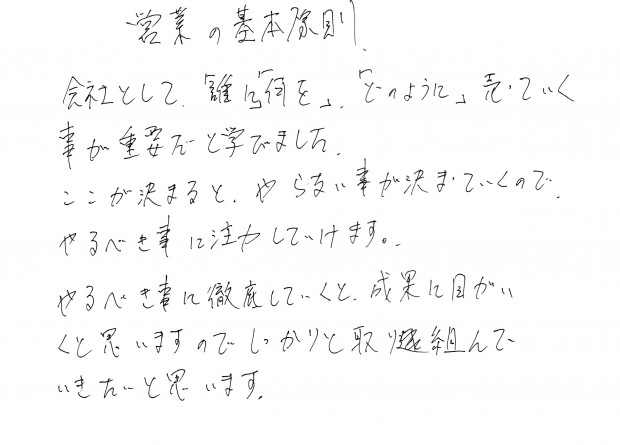 営業の基本原則
会社として、「誰に」「何を」、「どのように」売っていく
事が重要だと学びました。
ここが決まると、やらない事が決まっていくので、
やるべき事に注力していけます。
やるべき事に徹底していくと、成果に目がい
くと思いますのでしっかりと取り組んで
いきたいと思います。